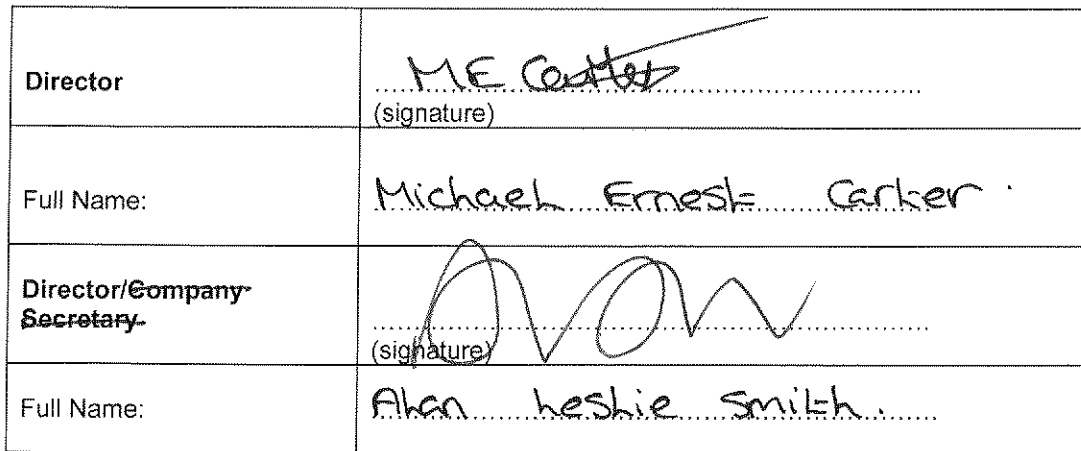 Director
ME Carter
(signature)
Full Name:
Michael Ernest Carter.
Director/Company
Secretary
(signature)
Full Name:
Alan Leslie Smith.